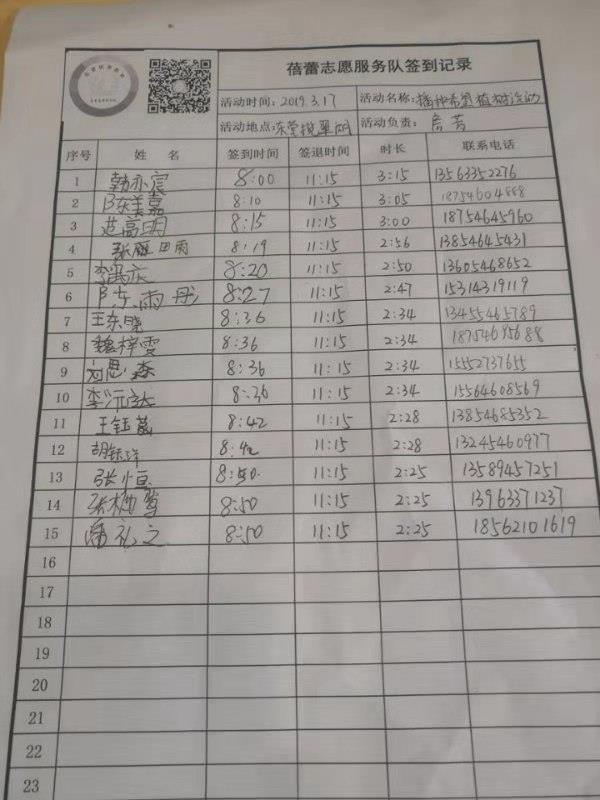 蓓蕾志愿服务队签到记录
活动时间: 2019.3.17 活动名称: 播种希望植树活动
活动地点: 活动负责:
序号 姓名 签到时间 签退时间 时长 联系电话
1 韩亦宸 8:00 11:15 3:15 13563352276
2 陈美嘉 8:10 11:15 3:05 18754604888
3 范高明 8:15 11:15 3:00 18754645960
4 张雁 8:19 11:15 2:56 13854645431
5 李禹辰 8:20 11:15 2:50 13605468652
6 陈雨彤 8:27 11:15 2:47 15314319119
7 王东晓 8:36 11:15 2:34 13455465789
8 魏梓雯 8:36 11:15 2:34
9 刘思淼 8:36 11:15 2:34 15552737655
10 李沅达 8:36 11:15 2:34 15564608569
11 王钰菡 8:42 11:15 2:28 13854685352
12 胡钰祥 8:42 11:15 2:28 13245460977
13 张恒 8:50 11:15 2:25 13589457251
14 8:50 11:15 2:25 13963371237
15 潘礼之 8:50 11:15 2:25 18562101619
16
17
18
19
20
21
22
23